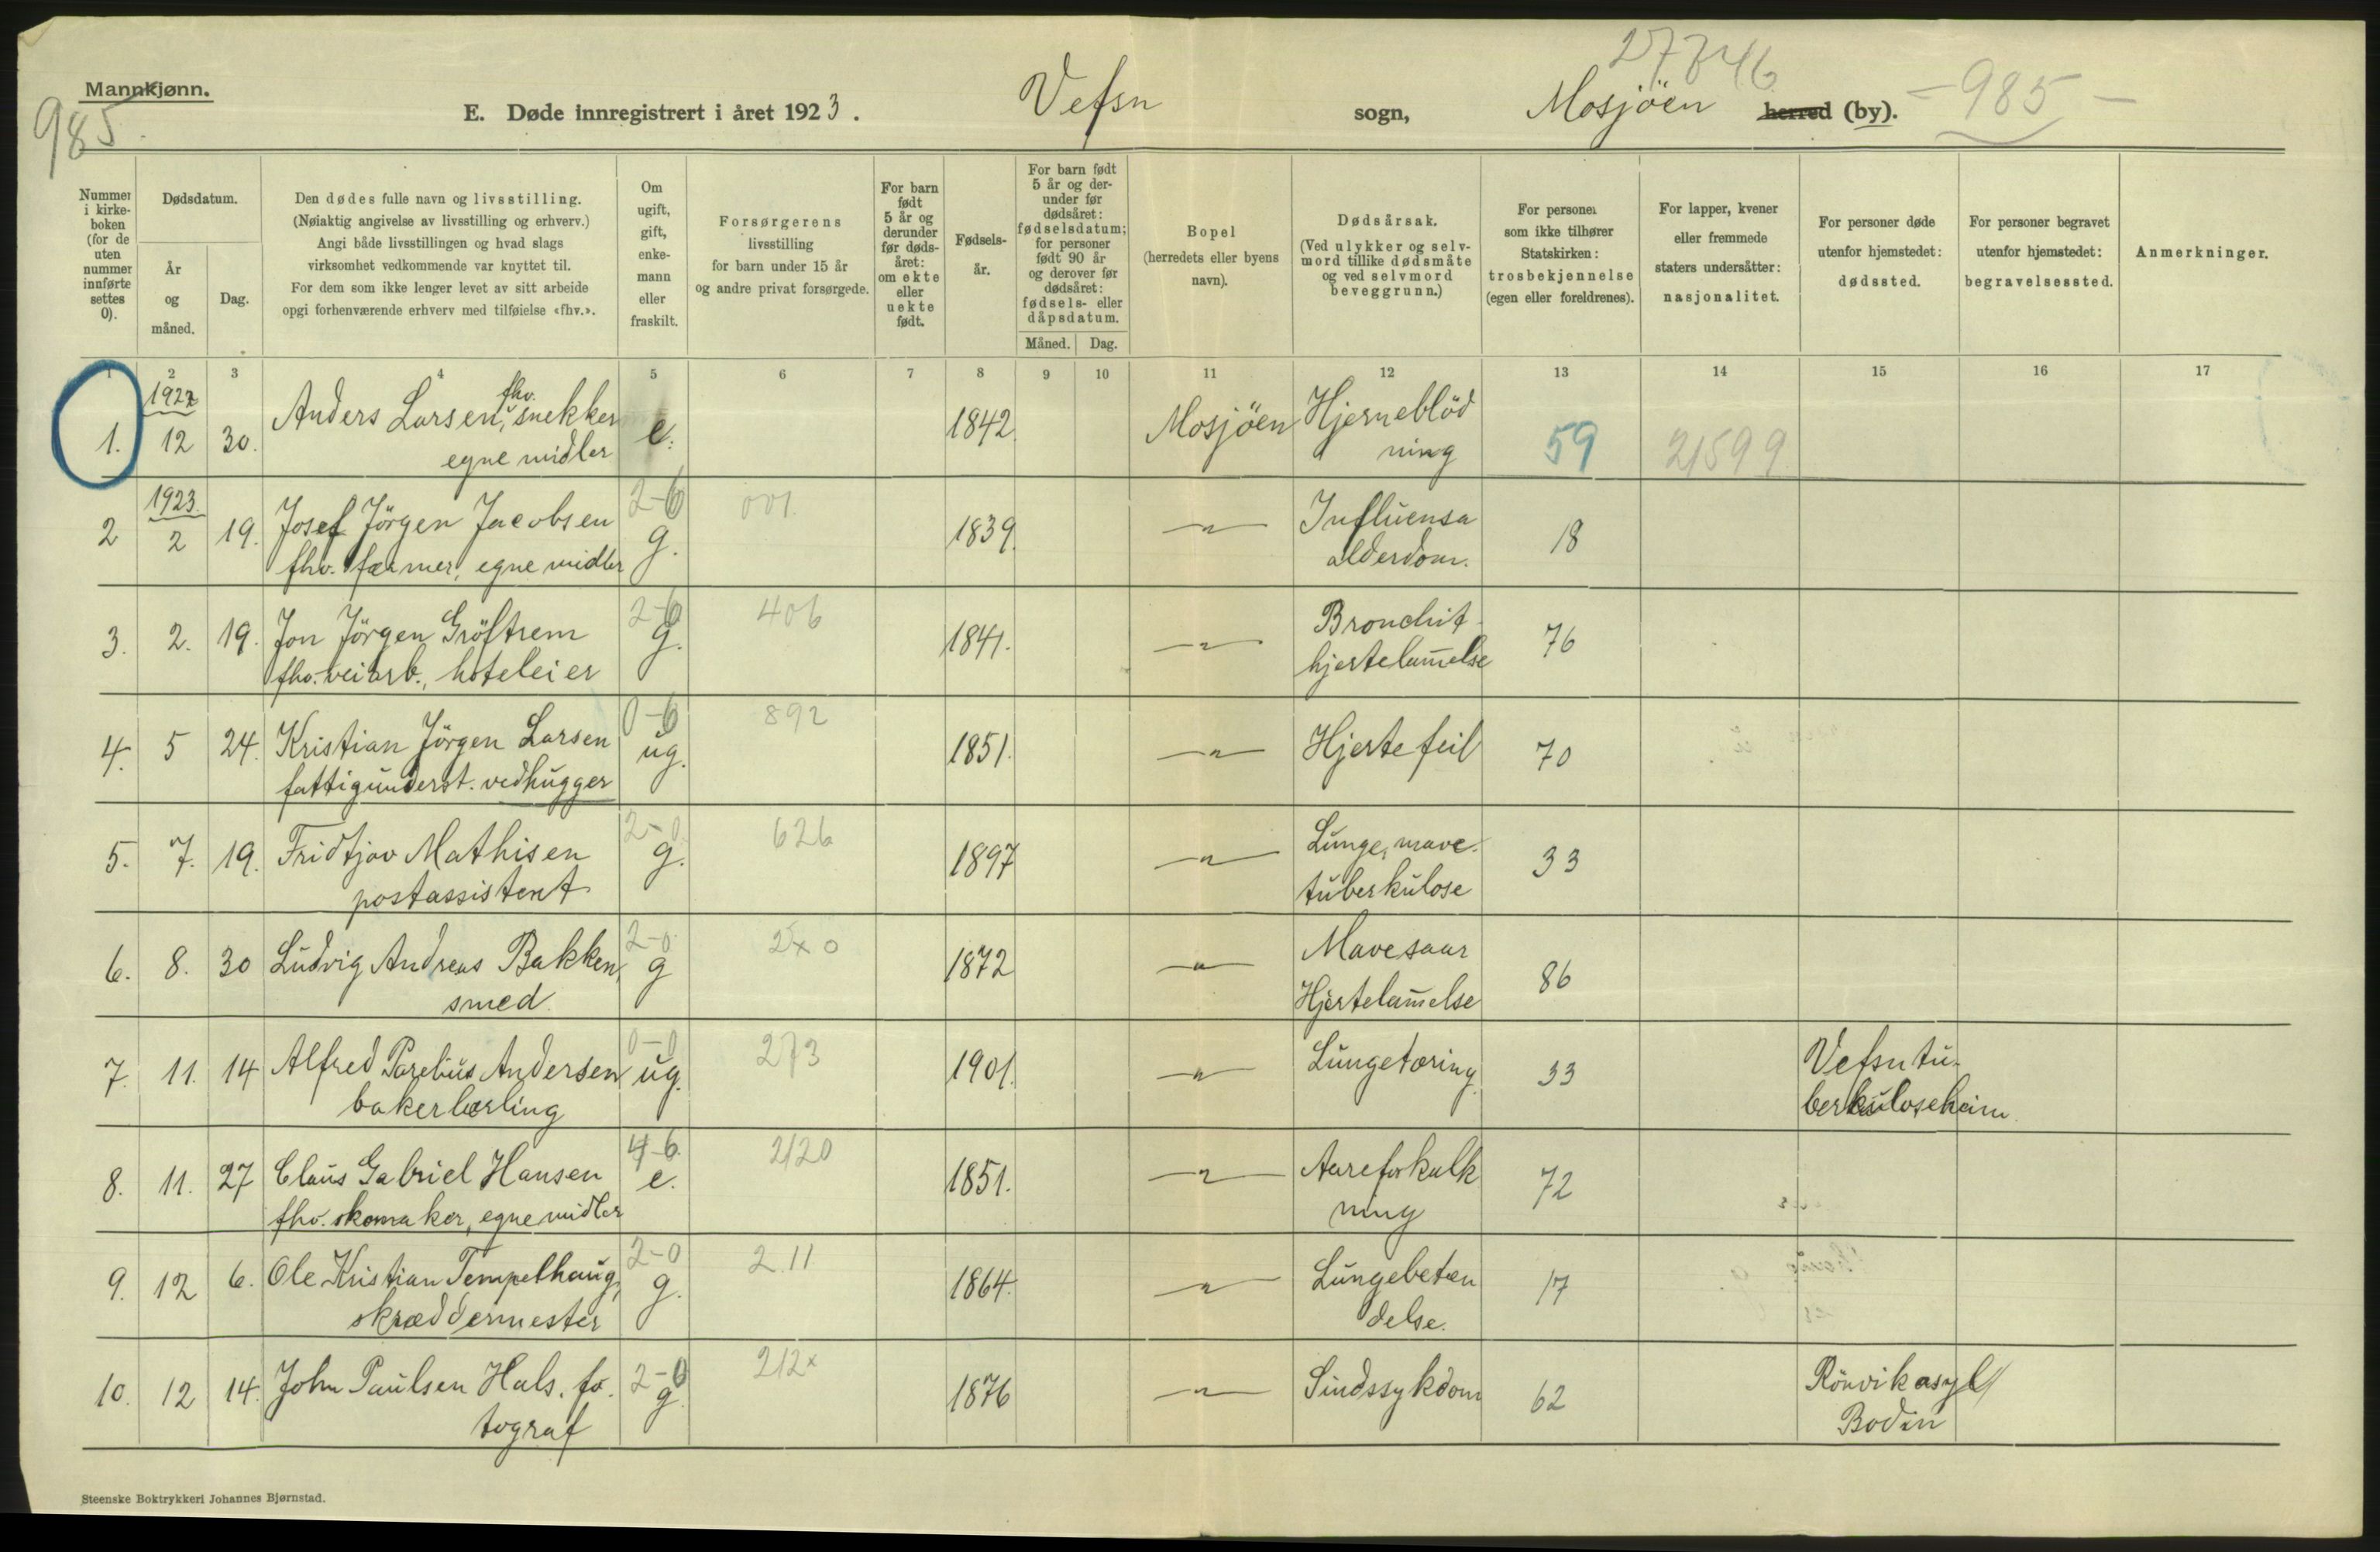 27746
Mannkjønn.
985.
E. Døde innregistrert i året 1923. Vefsn sogn, Mosjöen herred (by). - 985 -
Nummer i kirkeboken (for de uten nummer innførte settes 0).
Dødsdatum.
År og måned.
Dag.
Den dødes fulle navn og livsstilling.
(Nøiaktig angivelse av livsstilling og erhverv.)
Angi både livsstillingen og hvad slags
virksomhet vedkommende var knyttet til.
For dem som ikke lenger levet av sitt arbeide
opgi forhenværende erhverv med tilføielse «fhv.».
Om ugift, gift, enkemann eller fraskilt.
Forsørgerens
livsstilling
for barn under 15 år
og andre privat forsørgede.
For barn født 5 år og derunder før dødsåret: om ekte eller uekte født.
Fødselsår.
For barn født 5 år og derunder før dødsåret: fødselsdatum; for personer født 90 år og derover før dødsåret: fødsels- eller dåpsdatum.
Måned.
Dag.
Bopel
(herredets eller byens
navn).
Dødsårsak.
(Ved ulykker og selvmord tillike dødsmåte og ved selvmord beveggrunn.)
For personer
som ikke tilhører
Statskirken:
trosbekjennelse
(egen eller foreldrenes).
For lapper, kvener
eller fremmede
staters undersåtter:
nasjonalitet.
For personer døde
utenfor hjemstedet:
dødssted.
For personer begravet
utenfor hjemstedet:
begravelsessted.
Anmerkninger.
1 2 3 4 5 6 7 8 9 10 11 12 13 14 15 16 17
1922
fhv.
1. 12 30. Anders Larsen, snekker e. 1842. Mosjöen Hjerneblöd
egne midler ning 59 21599
1923.
2-6 001.
2 2 19. Josef Jörgen Jacobsen g. 1839. -"- Influensa 18
fhv. farmer, egne midler alderdom.
2-6 406
3. 2. 19. Jon Jörgen Gröftrem g. 1841. -"- Bronchit 76
fhv. veiarb., hoteleier hjertelam̅else
0-6 892
4. 5 24. Kristian Jörgen Larsen ug. 1851. -"- Hjertefeil 70
fattigunderst. vedhugger
2-0 626
5. 7. 19. Fridtjov Mathisen g. 1897 -"- Lunge, mave- 33
postassistent tuberkulose
2-0 2x0
6. 8. 30 Ludvig Andreas Bakken, g 1872 -"- Mavesaar 86
smed. Hjertelam̅else
0-0 273
7. 11. 14 Alfred Parelius Andersen ug. 1901. -"- Lungetæring 33 Vefsn tu-
bakerlærling berkuloseheim
4-6. 2120
8. 11. 27 Claus Gabriel Hansen e. 1851. -"- Aareforkalk 72
fhv. skomaker, egne midler ning
2-0 2.11
9. 12 6. Ole Kristian Tempelhaug, g. 1864. -"- Lungebetæn 17
skræddermester delse.
2-0 212x
10. 12 14. John Paulsen Hals, fo- g. 1876 -"- Sindssykdom 62 Rönvik asyl
tograf Bodin
Steenske Boktrykkeri Johannes Bjørnstad.